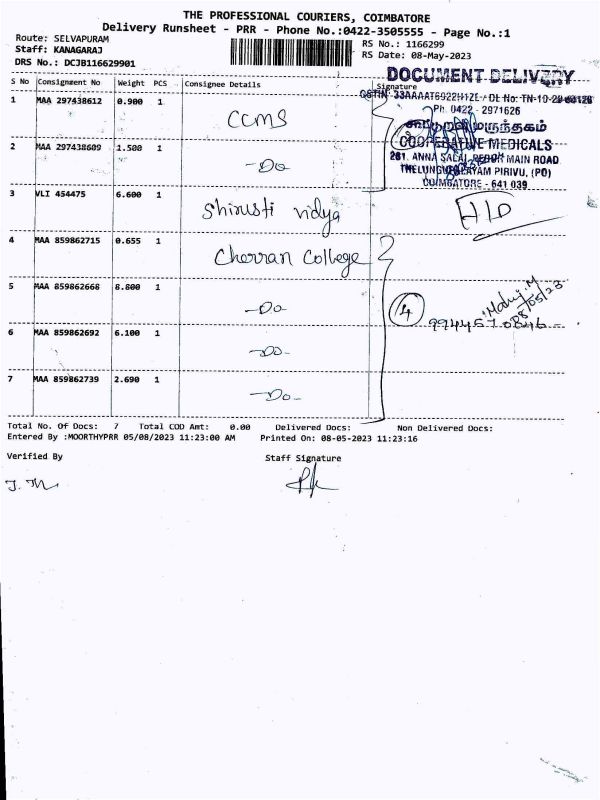 THE PROFESSIONAL COURIERS, COIMBATORE
Delivery Runsheet - PRR - Phone No.:0422-3505555 - Page No.:1
Route: SELVAPURAM
RS No.: 1166299
Staff: KANAGARAJ
RS Date: 08-May-2023
DRS No.: DCJB116629901
DOCUMENT DELIVERY
S No Consignment No Weight PCS Consignee Details Signature
1 MAA 297438612 0.900 1 CCMS
Ph: 0422 - 2971626
COOPERATIVE MEDICALS
2 MAA 297438609 1.500 1 -Do
281, ANNA SALAI, PEROR MAIN ROAD
THELUNGUPALAYAM PIRIVU, (PO)
COIMBATORE - 641 039
3 VLI 454475 6.600 1 Shirusti vidya
H/D
4 MAA 859862715 0.655 1 Cherran College
5 MAA 859862668 8.800 1 -Do-
4
Manoj.M
08/05/23
6 MAA 859862692 6.100 1 -Do-
7 MAA 859862739 2.690 1 -Do-
Total No. Of Docs: 7 Total COD Amt: 0.00 Delivered Docs: Non Delivered Docs:
Entered By :MOORTHYPRR 05/08/2023 11:23:00 AM Printed On: 08-05-2023 11:23:16
Verified By Staff Signature